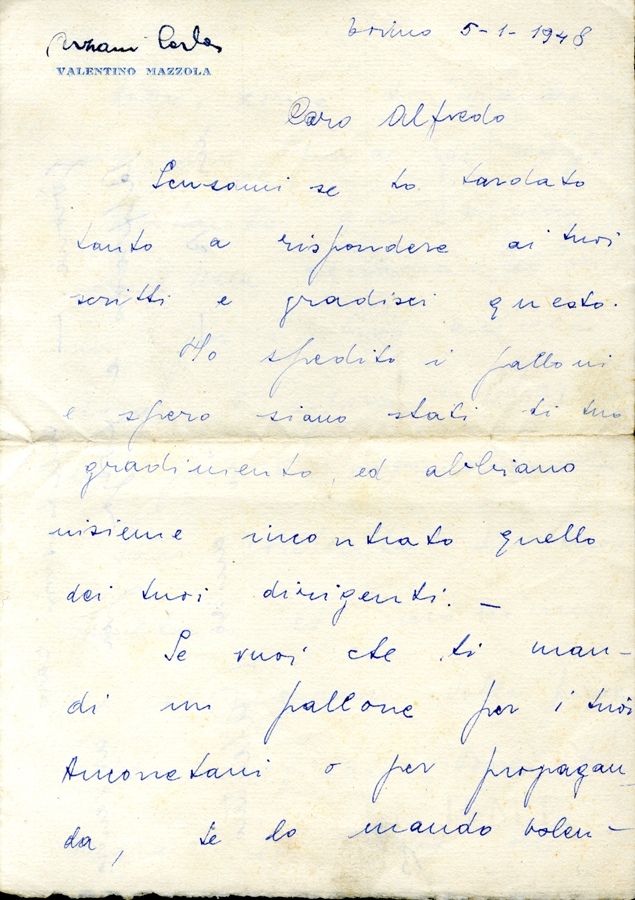 Torino 5-1-1948
VALENTINO MAZZOLA
Caro Alfredo
Scusami se to tardato
tanto a rispondere ai tuoi
scritti e gradisci questo.
Ho spedito i palloni
e spero siano stati di tuo
gradimento, ed abbiano
insieme incontrato quello
dei tuoi dirigenti. —
Se vuoi che ti man-
di un pallone per i tuoi
Anconetani o per propagan-
da, te lo mando volen-